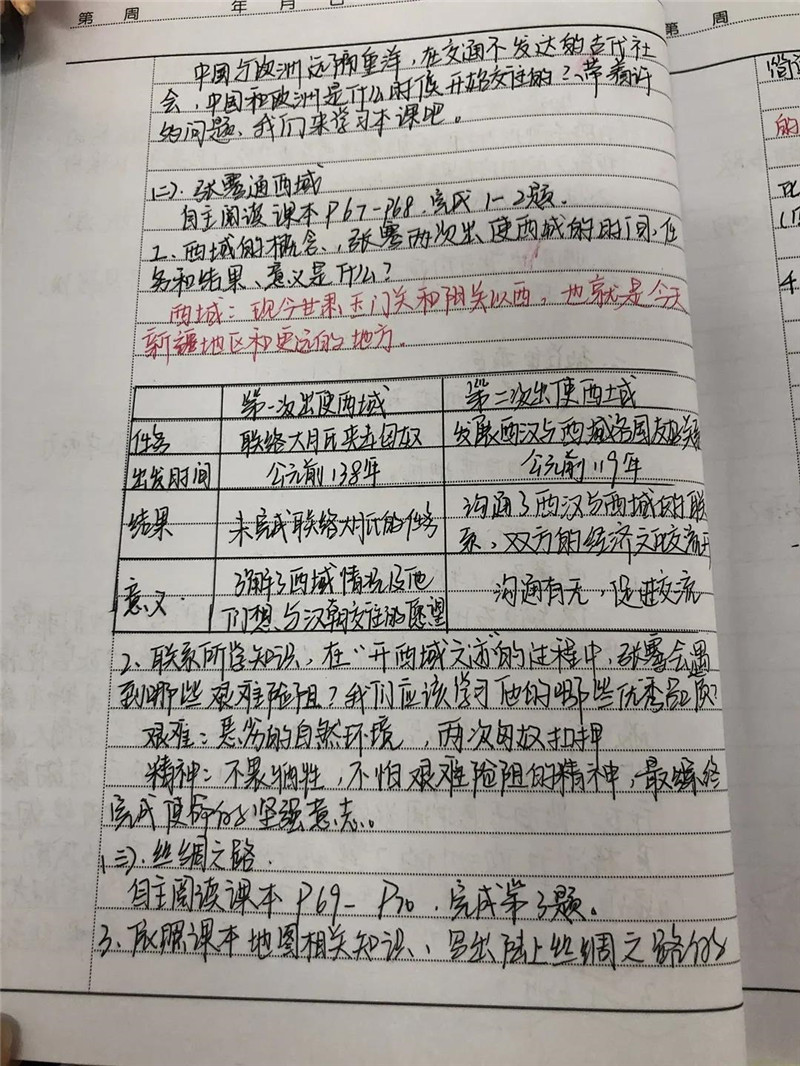 第 周 年 月 日
第 周
中国与欧洲远隔重洋，在交通不发达的古代社
会，中国和欧洲是什么时候开始交往的？带着许
的问题，我们来学习本课吧。
(二).张骞通西域
自主阅读课本P67-P68.完成1-2题.
1、西域的概念、张骞两次出使西域的时间,任
务和结果、意义是什么？
西域：现今甘肃玉门关和阳关以西，也就是今天
新疆地区和更远的地方.
第一次出使西域 第二次出使西域
任务 联络大月氏夹击匈奴 发展西汉与西域诸国友好关系
出发时间 公元前138年 公元前119年
结果 未完成联络大月氏的任务 沟通了西汉与西域的联
系，双方的经济文化交流开
意义. 了解了西域情况及他
们想与汉朝交往的愿望 沟通有无，促进交流
2、联系所学知识，在“开西域之迹”的过程中，张骞会遇
到哪些艰难险阻？我们应该学习他的哪些优秀品质？
艰难：恶劣的自然环境，两次匈奴扣押
精神：不畏牺牲，不怕艰难险阻的精神，最终
完成使命的坚强意志。
(三).丝绸之路.
自主阅读课本P69-P70.完成第3题。
3、依照课本地图相关知识、写出陆上丝绸之路的
简
的
4